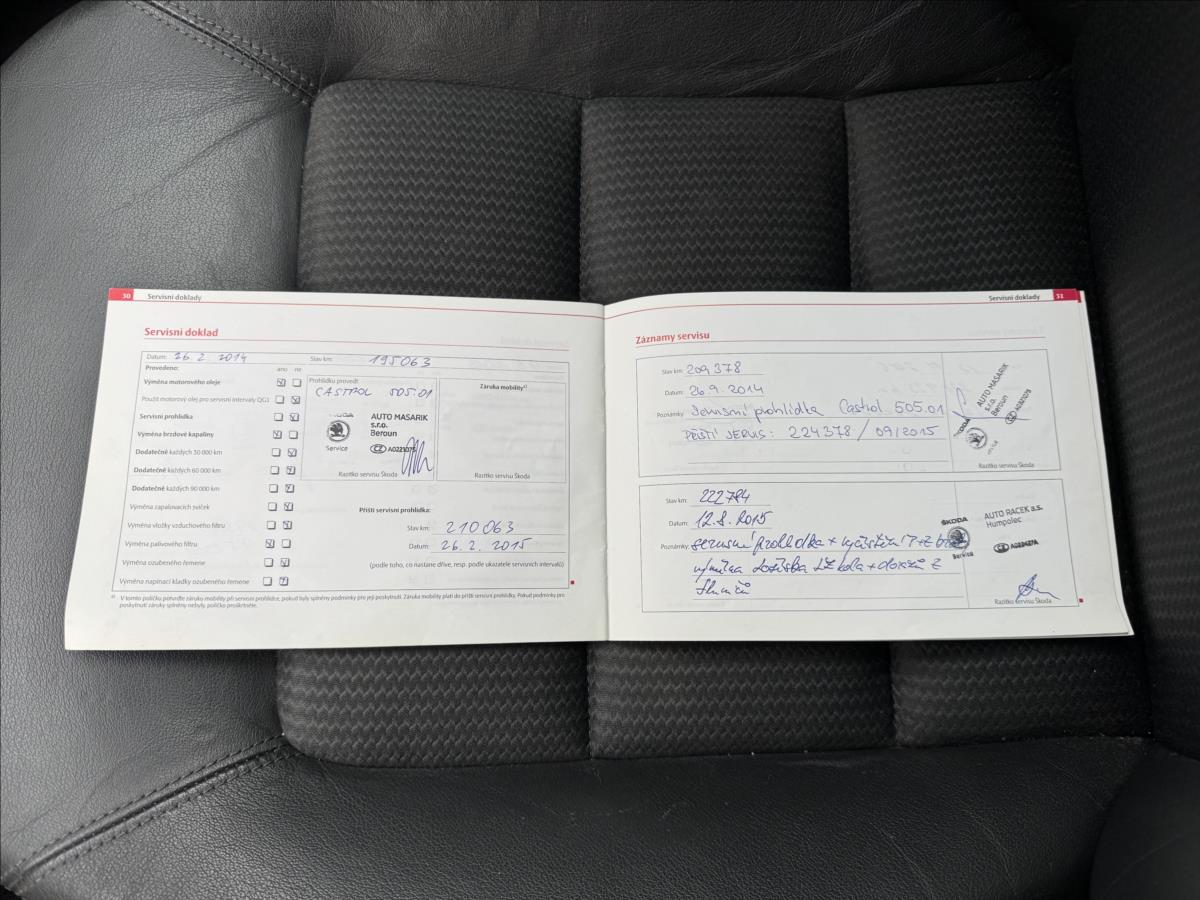 30 Servisní doklady
Servisní doklad
Datum: 26. 2. 2014 Stav km: 195063
Provedeno: ano ne
Výměna motorového oleje
Použit motorový olej pro servisní intervaly QG1
Servisní prohlídka
Výměna brzdové kapaliny
Dodatečně každých 30 000 km
Dodatečně každých 60 000 km
Dodatečně každých 90 000 km
Výměna zapalovacích svíček
Výměna vložky vzduchového filtru
Výměna palivového filtru
Výměna ozubeného řemene
Výměna napínací kladky ozubeného řemene
Prohlídku provedl:
CASTROL 505.01
Service
AUTO MASARIK
s.r.o.
Beroun
CZ
Razítko servisu Škoda
Záruka mobility¹⁾
Razítko servisu Škoda
Příští servisní prohlídka:
Stav km: 210063
Datum: 26. 2. 2015
(podle toho, co nastane dříve, resp. podle ukazatele servisních intervalů)
¹⁾ V tomto políčku potvrďte záruku mobility při servisní prohlídce, pokud byly splněny podmínky pro její poskytnutí. Záruka mobility platí do příští servisní prohlídky. Pokud podmínky pro
poskytnutí záruky splněny nebyly, políčko proškrtněte.
Servisní doklady 31
Záznamy servisu
Stav km: 209378
Datum: 26.9.2014
Poznámky: Servisní prohlídka Castrol 505.01
PŘÍŠTÍ SERVIS: 224378 / 09/2015
AUTO MASARIK
s.r.o.
Beroun
Razítko servisu Škoda
Stav km: 222784
Datum: 12.8.2015
Poznámky: servisní prohlídka +
výměna ložiska
ŠKODA
Service
AUTO RACEK a.s.
Humpolec
CZ
Razítko servisu Škoda